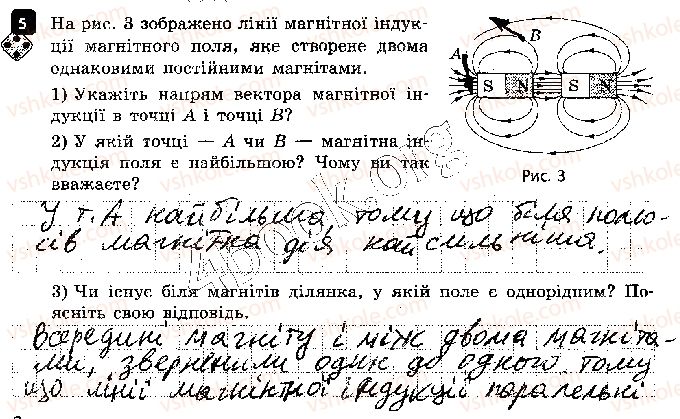 5
На рис. 3 зображено лінії магнітної індук-
ції магнітного поля, яке створене двома
однаковими постійними магнітами.
1) Укажіть напрям вектора магнітної ін-
дукції в точці А і точці В?
2) У якій точці — А чи В — магнітна ін-
дукція поля є найбільшою? Чому ви так
вважаєте?
A
B
S N S N
Рис. 3
У т. А найбільша, тому що біля полю-
сів магнітна дія найсильніша.
3) Чи існує біля магнітів ділянка, у якій поле є однорідним? По-
ясніть свою відповідь.
Всередині магніту і між двома магніта-
ми, зверненими один до одного тому
що лінії магнітної індукції паралельні
4book.org
vshkole.com